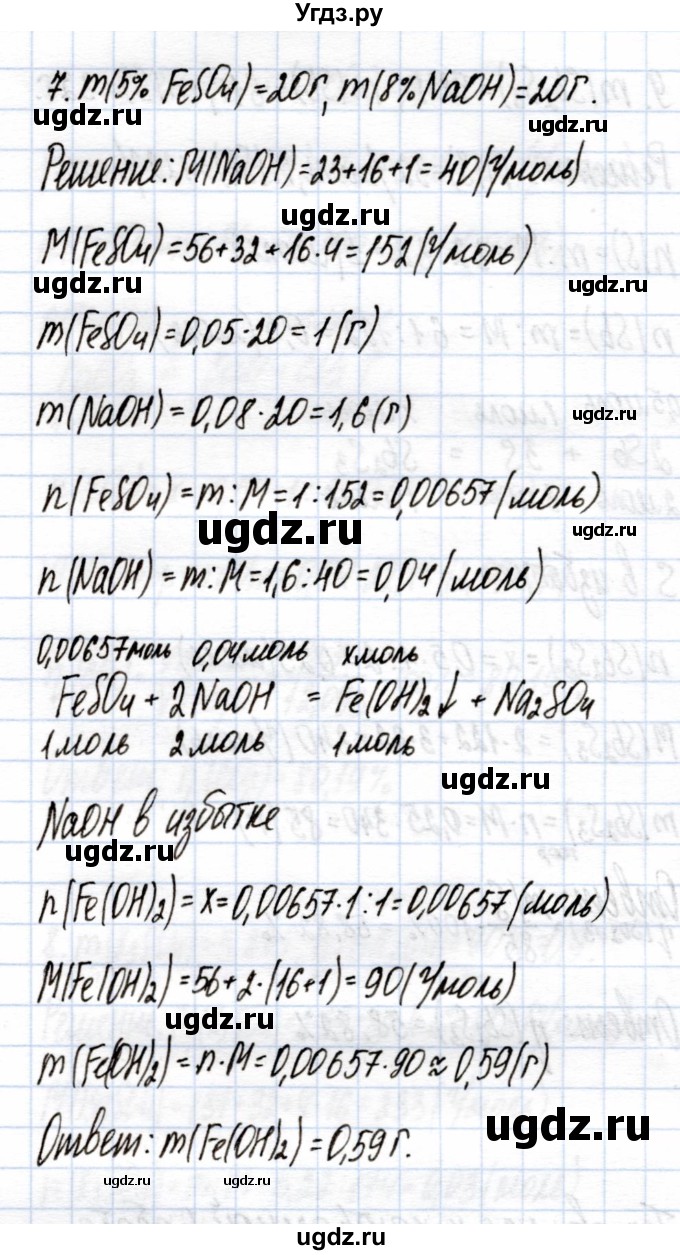 Угдз.ру
7. m(5% FeSO₄)=20г, m(8% NaOH)=20г.
ugdz.ru
ugdz.ru
Решение: M(NaOH)=23+16+1=40(г/моль)
ugdz.ru
M(FeSO₄)=56+32+16·4=152(г/моль)
ugdz.ru
ugdz.ru
m(FeSO₄)=0,05·20=1(г)
m(NaOH)=0,08·20=1,6(г)
ugdz.ru
n(FeSO₄)=m:M=1:152=0,00657(моль)
ugdz.ru
ugdz.ru
n(NaOH)=m:M=1,6:40=0,04(моль)
0,00657моль 0,04моль xмоль
FeSO₄+2NaOH = Fe(OH)₂↓+Na₂SO₄
1моль 2моль 1моль
ugdz.ru
NaOH в избытке
ugdz.ru
n(Fe(OH)₂)=x=0,00657·1:1=0,00657(моль)
M(Fe(OH)₂)=56+2·(16+1)=90(г/моль)
ugdz.ru
m(Fe(OH)₂)=n·M=0,00657·90≈0,59(г)
ugdz.ru
Ответ: m(Fe(OH)₂)=0,59г.
ugdz.ru
ugdz.ru
ugdz.ru